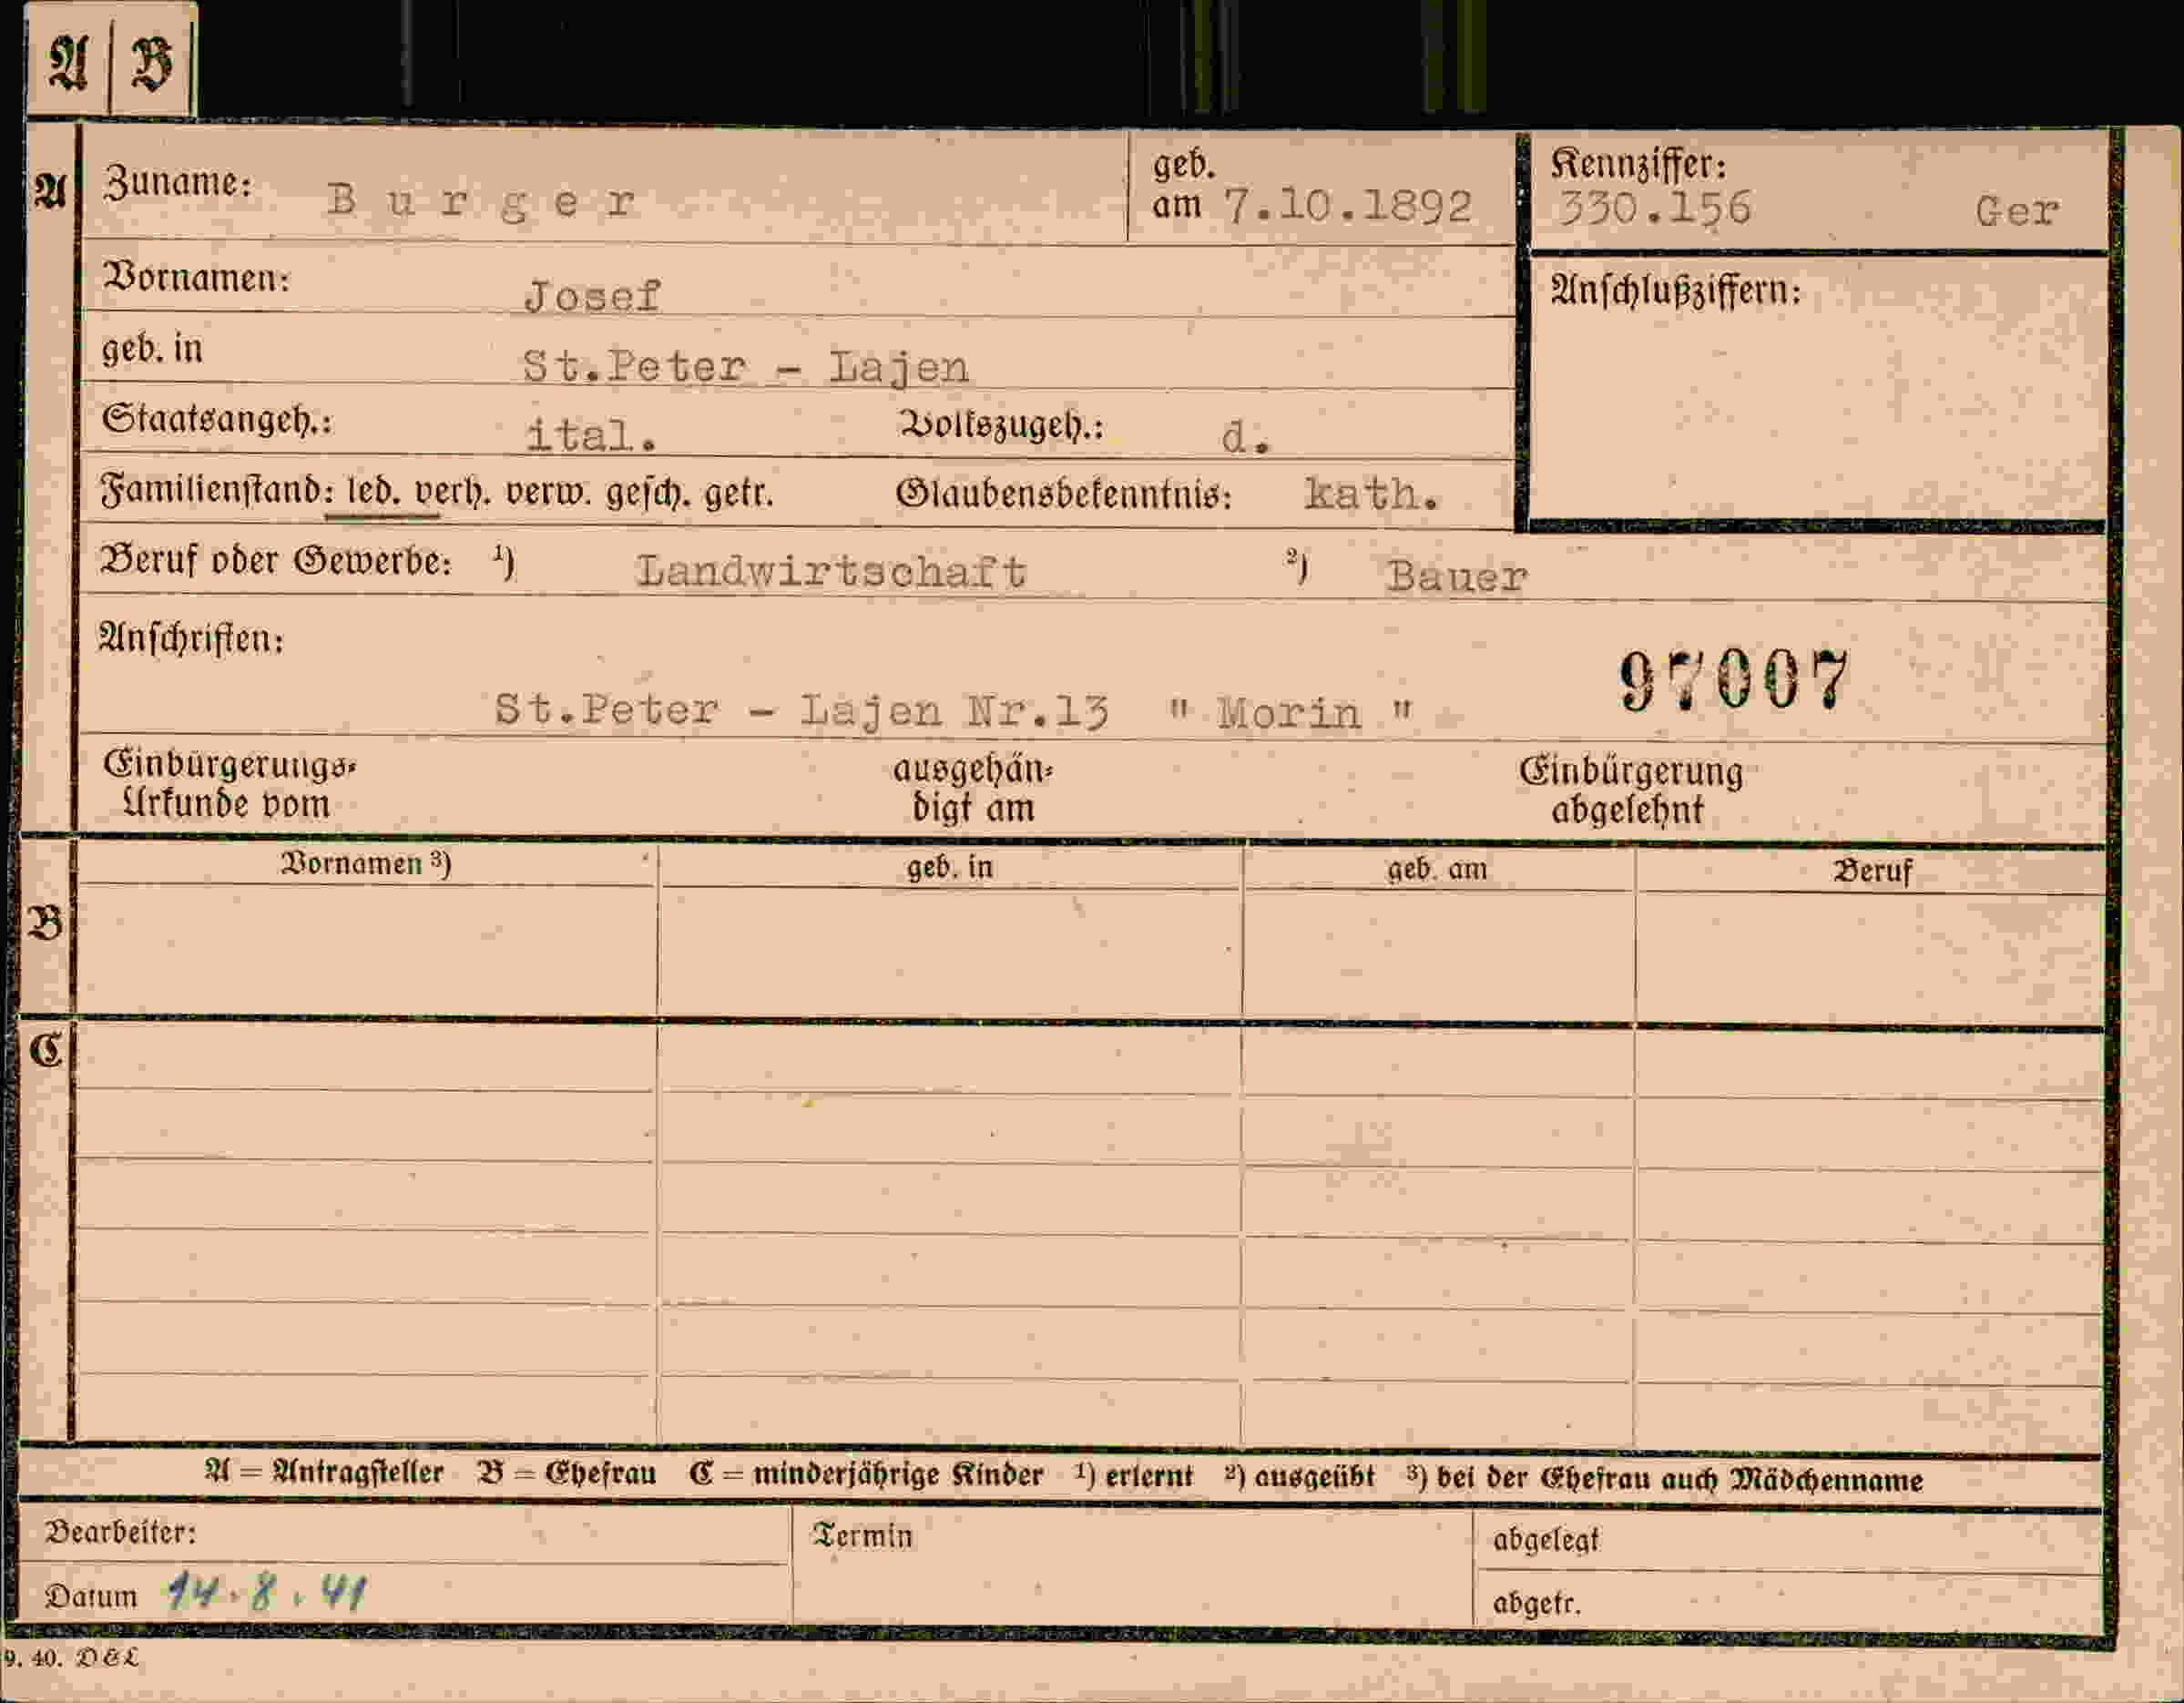 A | B
A
Zuname: Burger
geb.
am 7.10.1892
Kennziffer:
330.156 Ger
Vornamen: Josef
Anschlußziffern:
geb. in St.Peter - Lajen
Staatsangeh.: ital. Volkszugeh.: d.
Familienstand: led. verh. verw. gesch. getr. Glaubensbekenntnis: kath.
Beruf oder Gewerbe: 1) Landwirtschaft 2) Bauer
Anschriften:
97007
St.Peter - Lajen Nr.13 " Morin "
Einbürgerungs-
Urkunde vom
ausgehän-
digt am
Einbürgerung
abgelehnt
B
Vornamen 3) geb. in geb. am Beruf
C
A = Antragsteller B = Ehefrau C = minderjährige Kinder 1) erlernt 2) ausgeübt 3) bei der Ehefrau auch Mädchenname
Bearbeiter: Termin abgelegt
Datum 14.8.41 abgetr.
9. 40. DEL